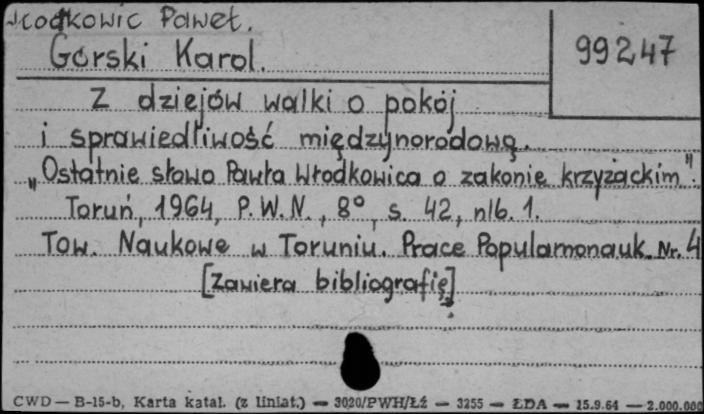 Włodkowic Paweł.
Górski Karol.
99247
Z dziejów walki o pokój
i sprawiedliwość międzynorodową.
„Ostatnie słowo Pawła Włodkowica o zakonie krzyżackim".
Toruń, 1964, P.W.N., 8°, s. 42, nlb. 1.
Tow. Naukowe w Toruniu. Prace Popularnonauk. Nr. 4
[Zawiera bibliografię]
CWD — B-15-b, Karta katal. (z liniat.) — 3020/PWH/Łź — 3255 — ŁDA — 15.9.64 — 2.000.000